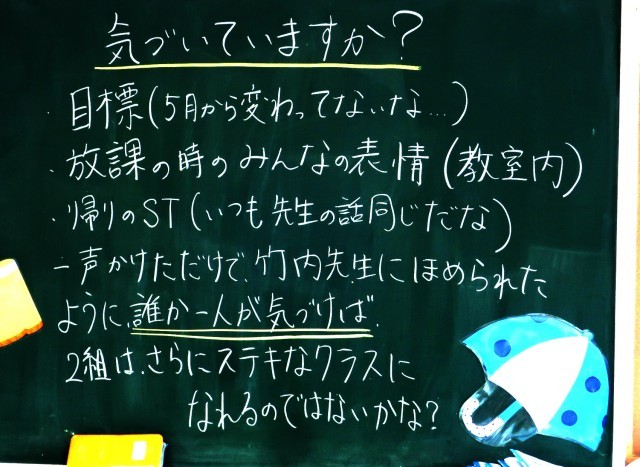 気づいていますか?
・目標(5月から変わってないな…)
・放課の時のみんなの表情(教室内)
・帰りのST(いつも先生の話同じだな)
一声かけただけで、竹内先生にほめられた
ように、誰か一人が気づけば、
2組は、さらにステキなクラスに
なれるのではないかな?